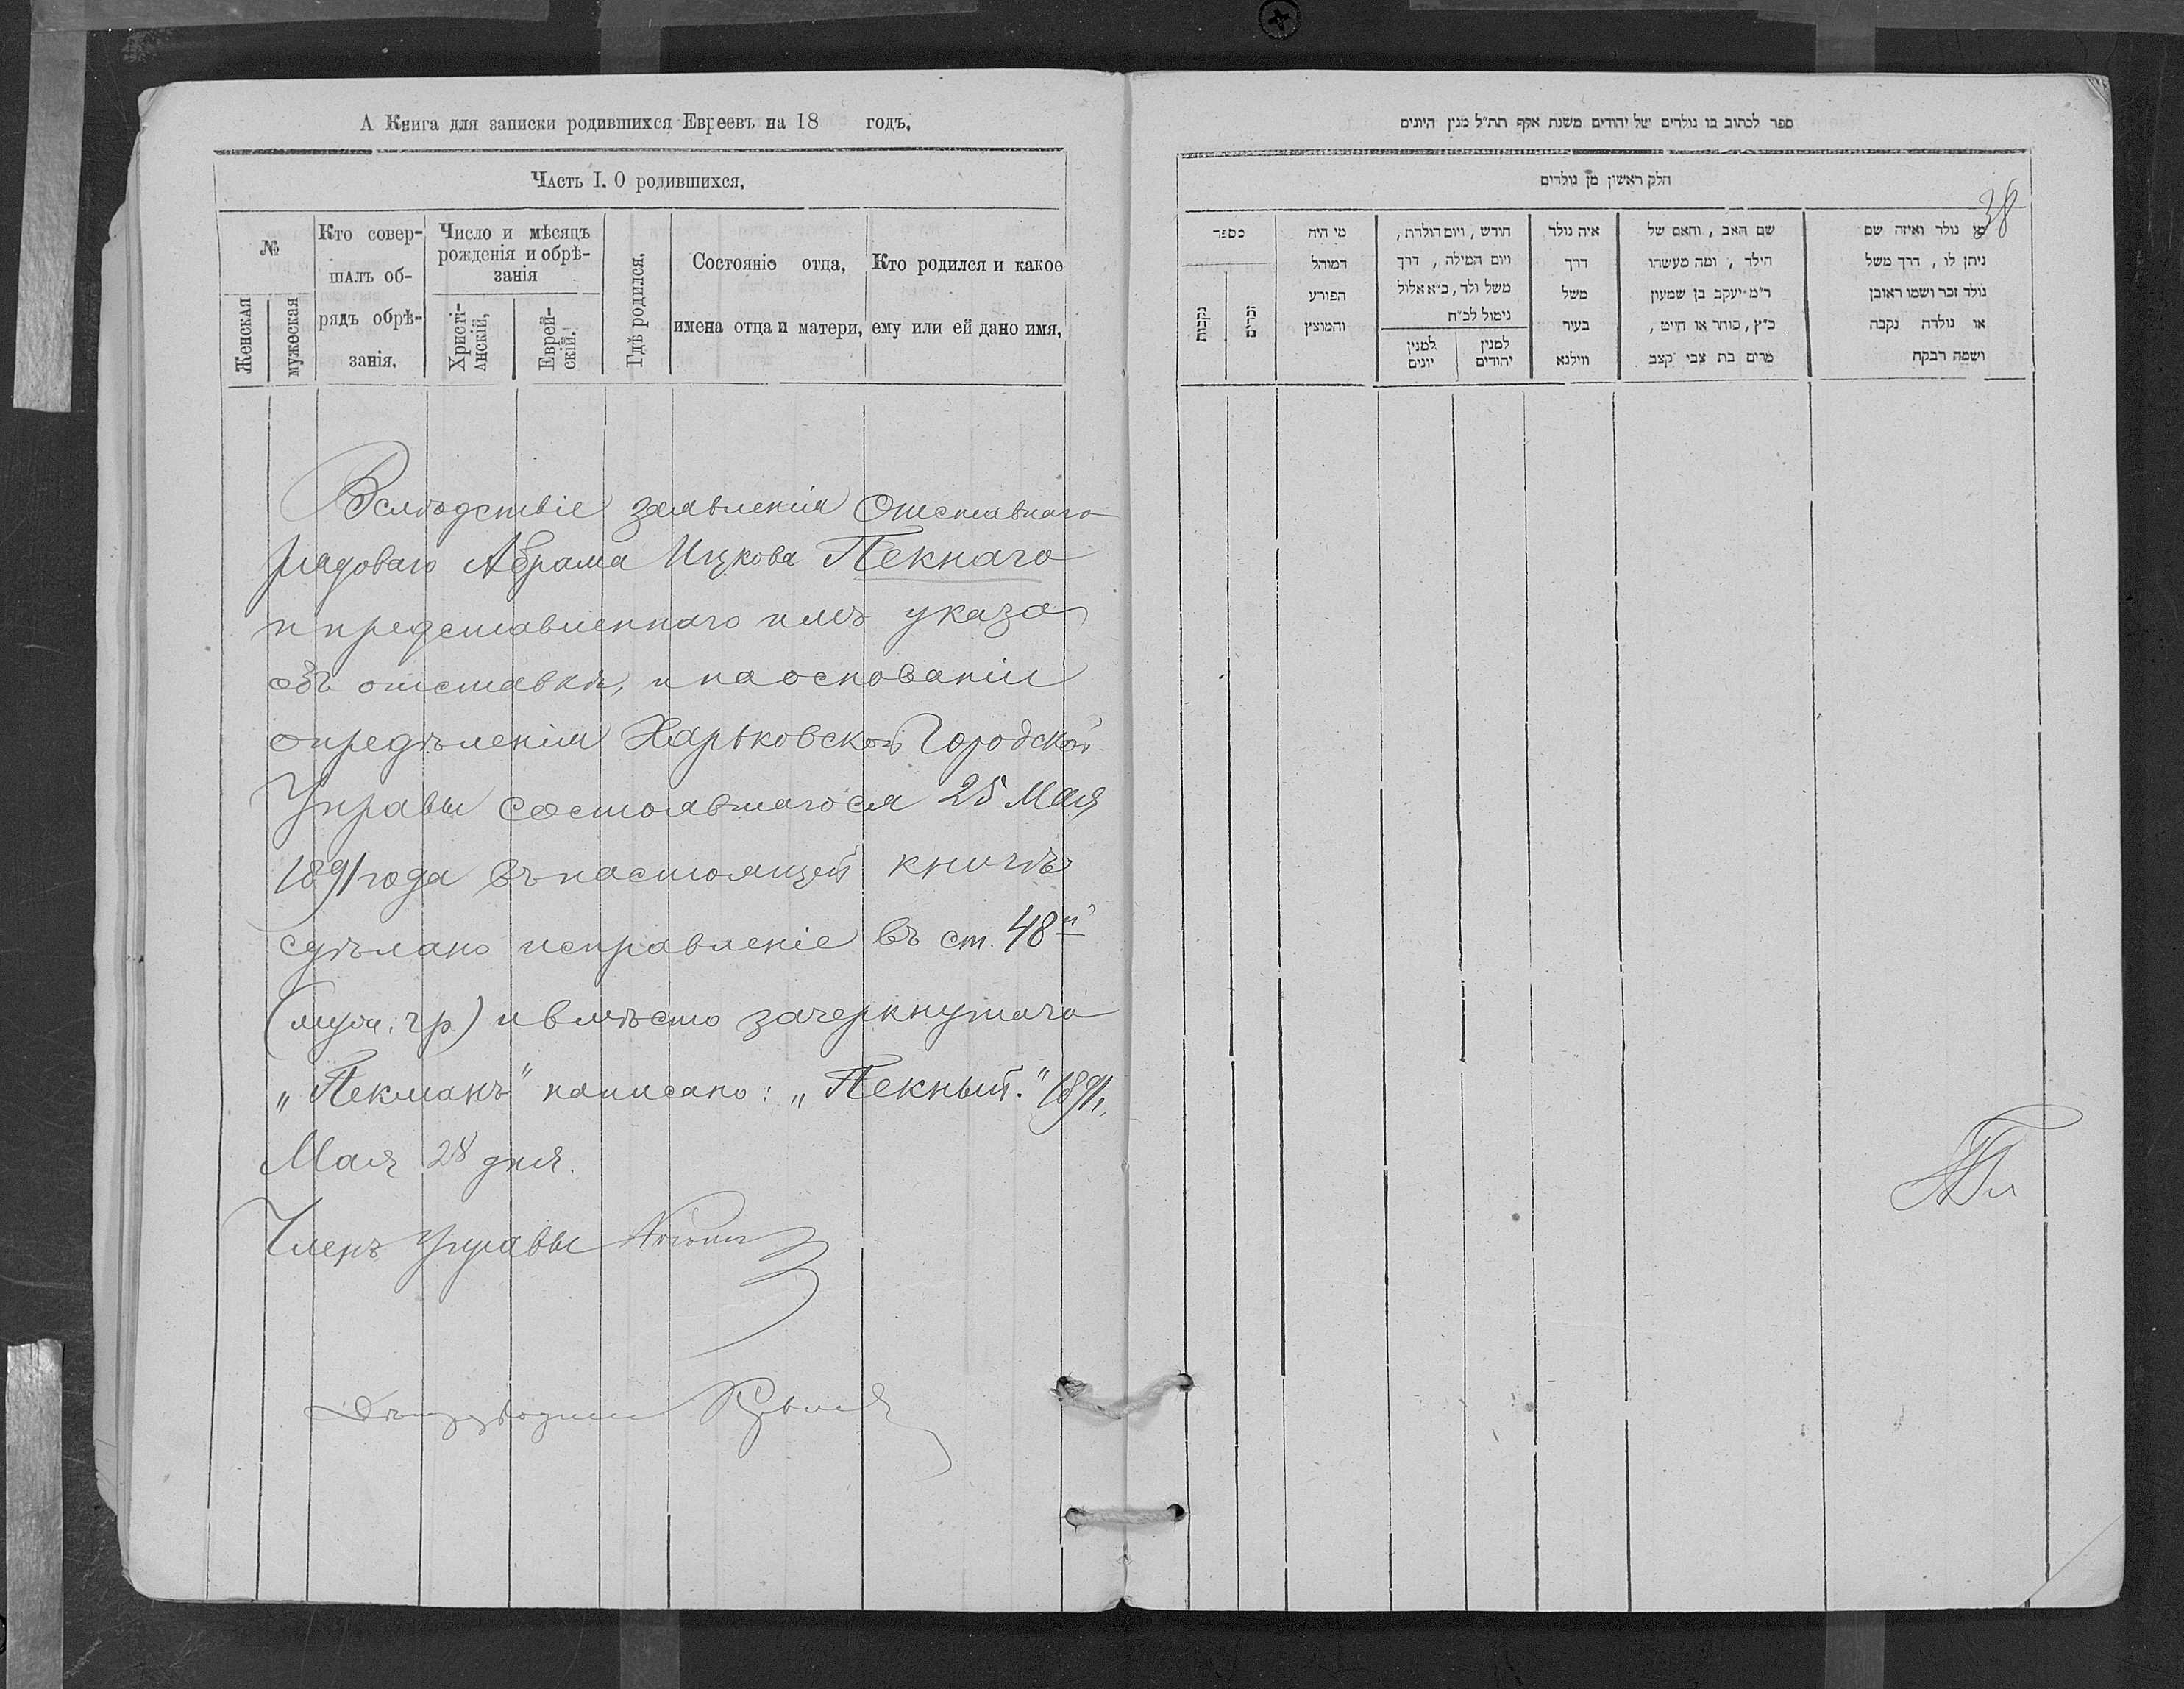 А Книга для записки родившихся Евреевъ на 18 годъ.
Часть I. О родившихся.
№
Женская
мужеская
Кто совер-
шалъ об-
рядъ обрѣ-
занія.
Число и мѣсяцъ
рожденія и обрѣ-
занія
Христі-
анскій,
Еврей-
скій.
Гдѣ родился.
Состояніе отца,
имена отца и матери,
Кто родился и какое
ему или ей дано имя,
Вслѣдствіе заявленія Отставнаго
рядоваго Абрама Ицкова Пекнаго
и представленнаго имъ указа
объ отставкѣ, и на основаніи
опредѣленія Харьковской Городской
Управы состоявшагося 25 Мая
1891 года въ настоящей книгѣ
сдѣлано исправленіе въ ст. 48й
(муж. гр) и вмѣсто зачеркнутаго
„Пекманъ" написано: „Пекный." 1891,
Мая 28 дня.
Членъ Управы
ספר לכתוב בו נולדים של יהודים משנת אלף תת״ל מנין היונים
חלק ראשון מן נולדים
38
מי נולד ואיזה שם
ניתן לו, דרך משל
נולד זכר ושמו ראובן
או נולדה נקבה
ושמה רבקה
שם האב, והאם של
הילד, ומה מעשהו
ר״מ יעקב בן שמעון
כ״ץ, סוחר או חייט,
מרים בת צבי קצב
איה נולד
דרך
משל
בעיר
ווילנא
חודש, ויום הולדת,
ויום המילה, דרך
משל ולד, כ״א אלול
נימול לכ״ח
למנין
יהודים
למנין
יונים
מי היה
המוהל
הפורע
והמוצץ
מספר
זכרים
נקבות